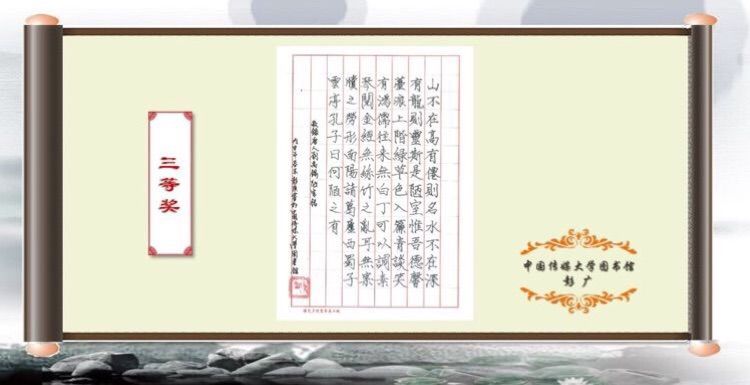 三等奖
山不在高有僊則名水不在深
有龍則靈斯是陋室惟吾德馨
薹痕上階綠草色入簾青談笑
有鴻儒往來無白丁可以調素
琴閱金經無絲竹之亂耳無案
牘之勞形南陽諸葛廬西蜀子
雲亭孔子曰何陋之有
敬錄唐人劉禹錫陋室銘
丙申年彭廣書於中國傳媒大學圖書館
中国传媒大学图书馆
彭广